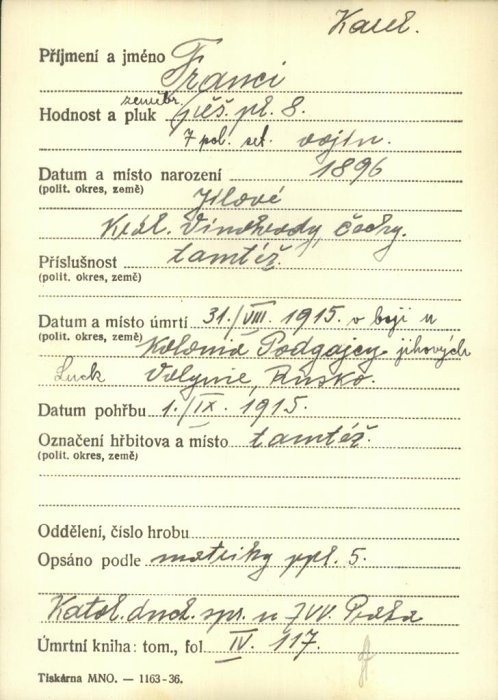 Karel.
Příjmení a jméno Franci
zeměbr.
Hodnost a pluk pěš. pl. 8.
7 pol. set. vojín.
Datum a místo narození 1896
(polit. okres, země) Jílové
Král. Vinohrady, Čechy.
Příslušnost tamtéž.
(polit. okres, země)
Datum a místo úmrtí 31./VIII. 1915. v boji u
(polit. okres, země) Koloma Podgajcy jihových
Luck Volynie, Rusko.
Datum pohřbu 1./IX. 1915.
Označení hřbitova a místo tamtéž.
(polit. okres, země)
Oddělení, číslo hrobu
Opsáno podle matriky ppl. 5.
Katol. duch. spr. u ZVV. Praha
Úmrtní kniha: tom., fol IV. 117.
Tiskárna MNO. — 1163-36.